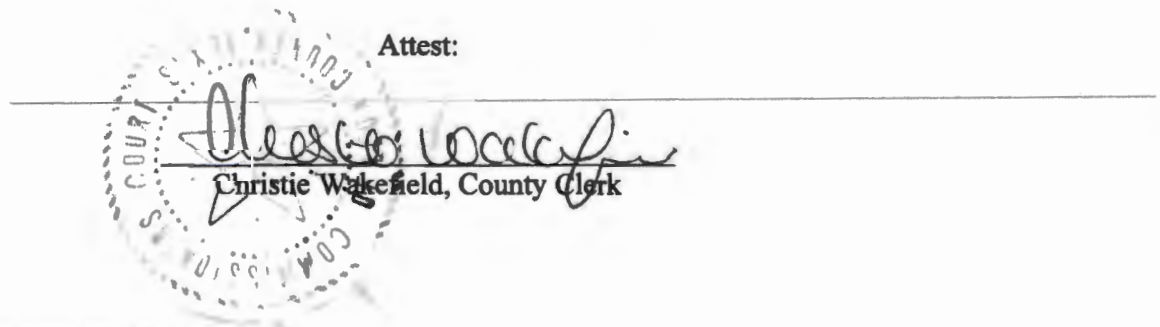 Attest:
Christie Wakefield
Christie Wakefield, County Clerk